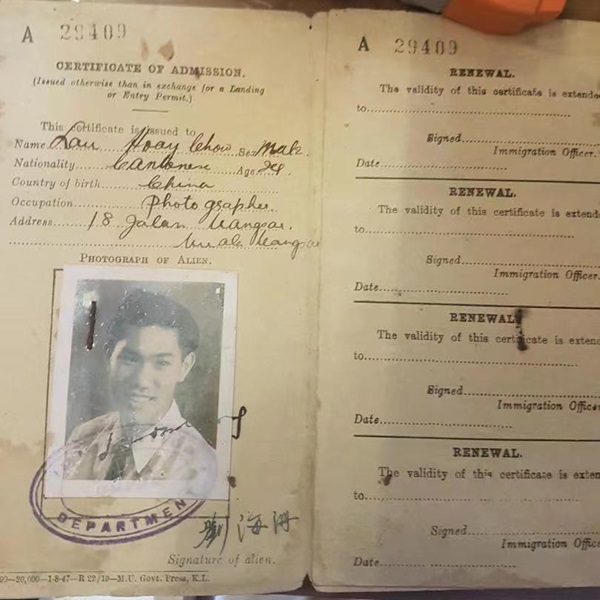 A 29409
CERTIFICATE OF ADMISSION.
(Issued otherwise than in exchange for a Landing
or Entry Permit.)
This certificate is issued to
Name Lau Hoay Chow Sex Male.
Nationality Cantonese Age 24.
Country of birth China
Occupation Photographer.
Address 18 Jalan Kangsar.
Kuala Kangsar
PHOTOGRAPH OF ALIEN.
DEPARTMENT
劉海洲
Signature of alien.
00—20,000—1-8-47—R 22/19—M.U. Govt. Press, K.L.
A 29409
RENEWAL.
The validity of this certificate is extende
to
Signed
Immigration Officer.
Date
RENEWAL.
The validity of this certificate is extende
to
Signed
Immigration Officer.
Date
RENEWAL
The validity of this certificate is exten
to
Signed
Immigration Office
Date
RENEWAL.
The validity of this certificate is exten
to
Signed
Immigration Offic
Date